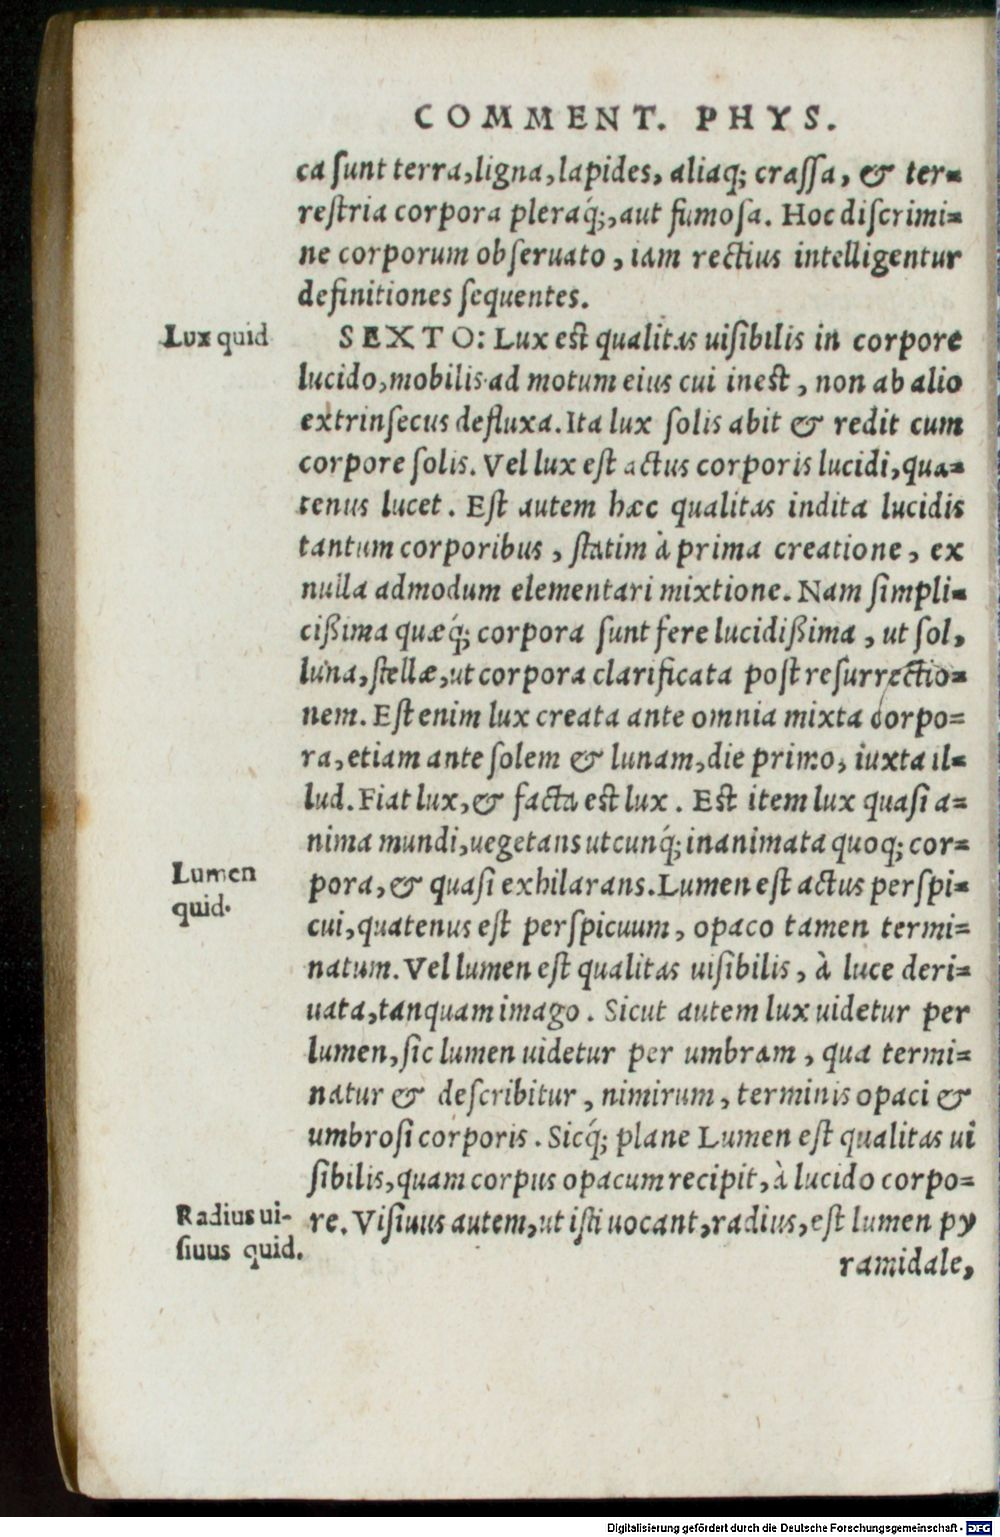 COMMENT. PHYS.
ca sunt terra, ligna, lapides, aliaq; crassa, & ter-
restria corpora pleraq́;, aut fumosa. Hoc discrimi-
ne corporum obseruato, iam rectius intelligentur
definitiones sequentes.
Lux quid
SEXTO: Lux est qualitas uisibilis in corpore
lucido, mobilis ad motum eius cui inest, non ab alio
extrinsecus defluxa. Ita lux solis abit & redit cum
corpore solis. Vel lux est actus corporis lucidi, qua-
tenus lucet. Est autem hæc qualitas indita lucidis
tantum corporibus, statim à prima creatione, ex
nulla admodum elementari mixtione. Nam simpli-
cißima quæq́; corpora sunt fere lucidißima, ut sol,
luna, stellæ, ut corpora clarificata post resurrectio-
nem. Est enim lux creata ante omnia mixta corpo-
ra, etiam ante solem & lunam, die primo, iuxta il-
lud. Fiat lux, & facta est lux. Est item lux quasi a-
nima mundi, uegetans utcunq́; inanimata quoq; cor-
Lumen
quid.
pora, & quasi exhilarans. Lumen est actus perspi-
cui, quatenus est perspicuum, opaco tamen termi-
natum. Vel lumen est qualitas uisibilis, à luce deri-
uata, tanquam imago. Sicut autem lux uidetur per
lumen, sic lumen uidetur per umbram, qua termi-
natur & describitur, nimirum, terminis opaci &
umbrosi corporis. Sicq́; plane Lumen est qualitas ui
sibilis, quam corpus opacum recipit, à lucido corpo-
Radius ui-
siuus quid.
re. Visiuus autem, ut isti uocant, radius, est lumen py
ramidale,
Digitalisierung gefördert durch die Deutsche Forschungsgemeinschaft - DFG